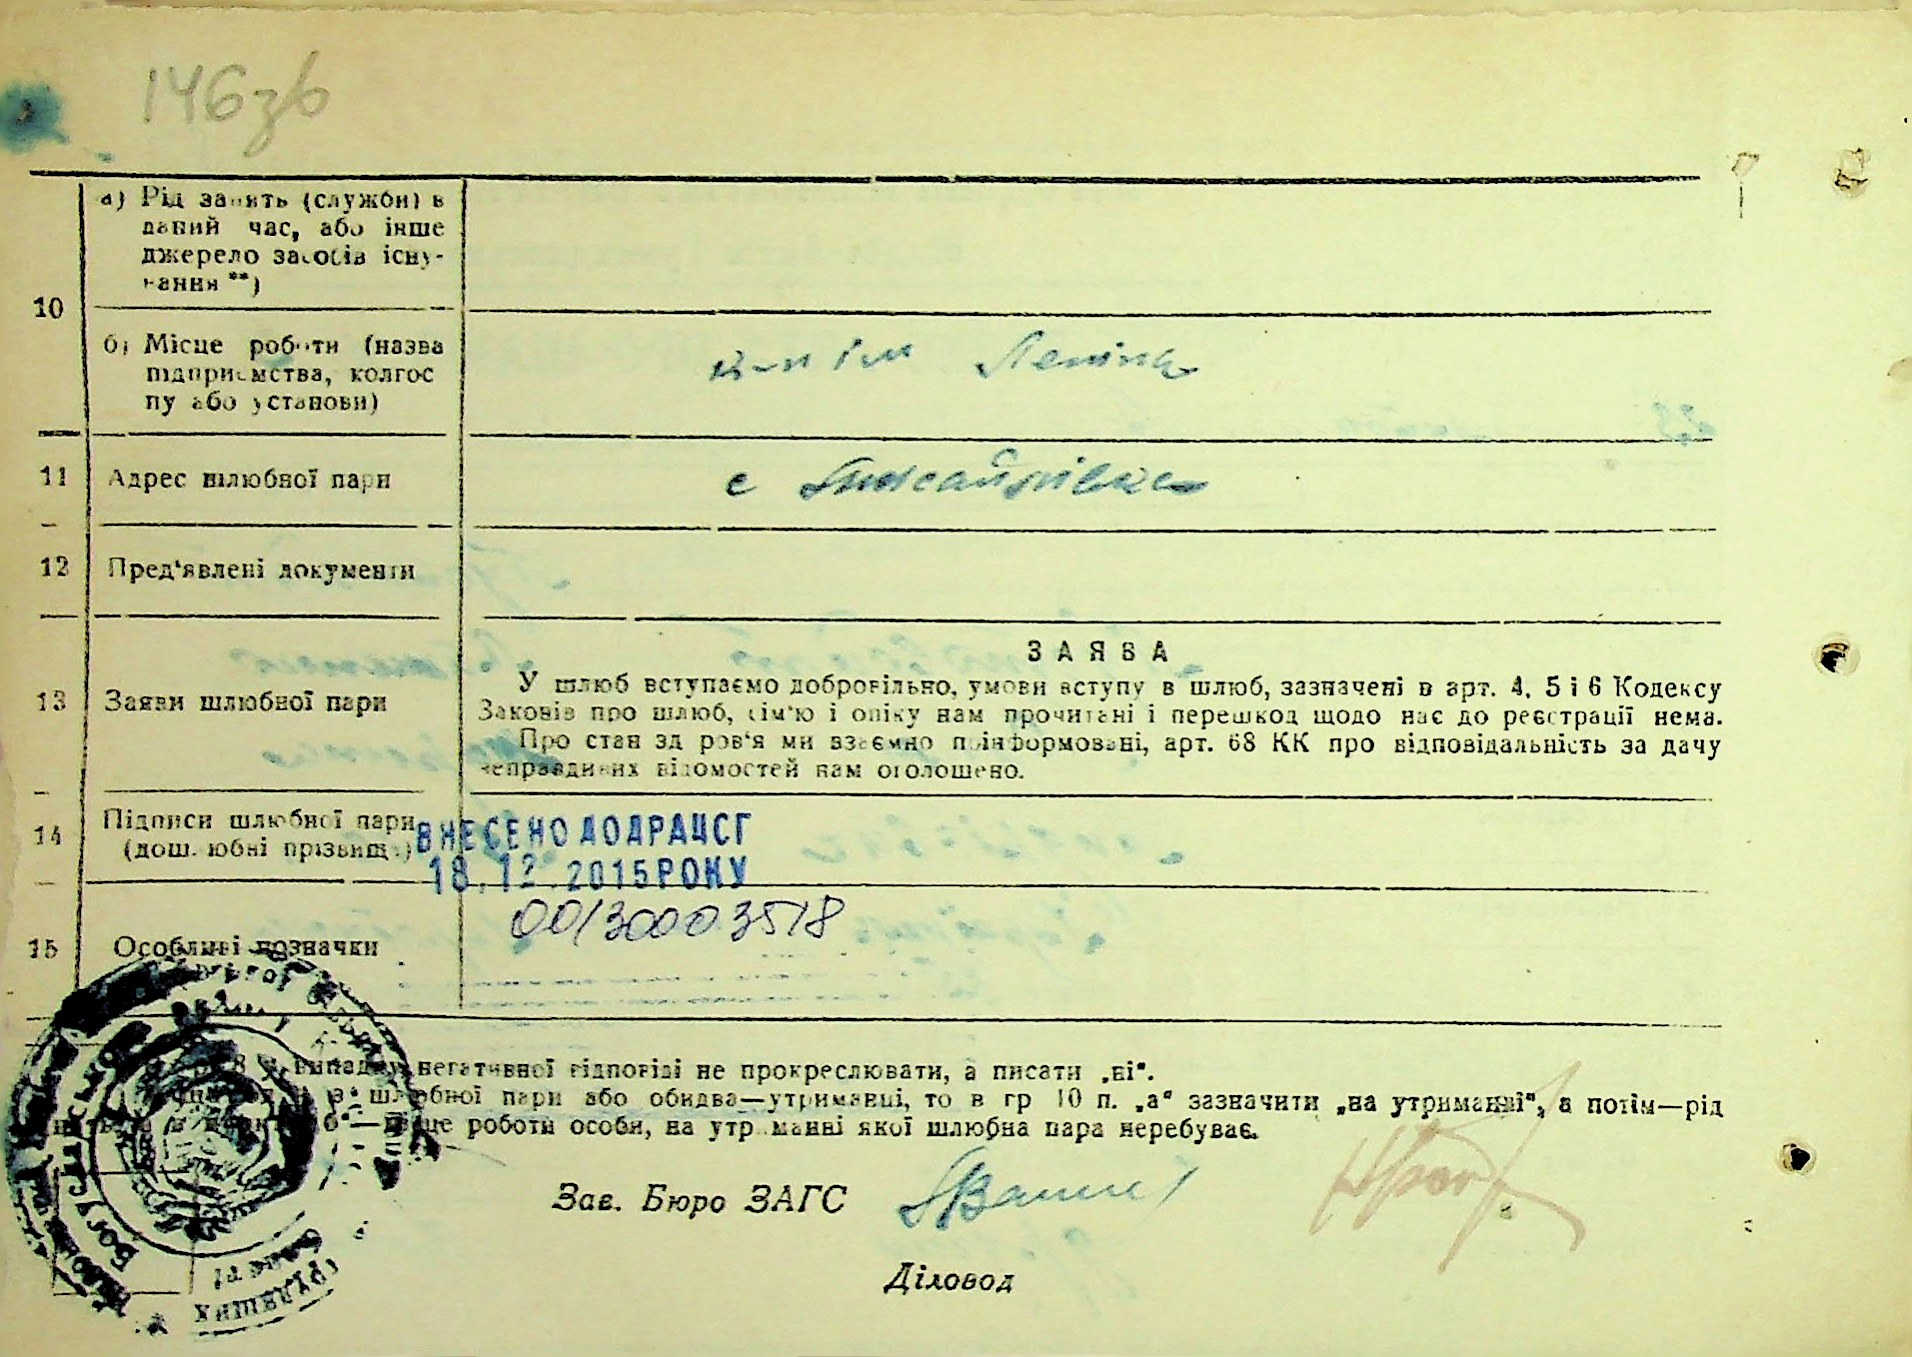 146зв
а) Рід занять (служби) в
даний час, або інше
джерело засобів існу-
вання **)
10
б) Місце роботи (назва
підприємства, колгос
пу або установи)
к-п ім Леніна
11 Адрес шлюбної пари
с
12 Пред'явлені документи
ЗАЯВА
13 Заяви шлюбної пари
У шлюб вступаємо добровільно, умови вступу в шлюб, зазначені в арт. 4, 5 і 6 Кодексу
Законів про шлюб, сім'ю і опіку нам прочитані і перешкод щодо нас до реєстрації нема.
Про стан здоров'я ми взаємно поінформовані, арт. 68 КК про відповідальність за дачу
неправдивих відомостей нам оголошено.
14 Підписи шлюбної пари
(дошлюбні прізвища)
ВНЕСЕНО ДО ДРАЦСГ
18.12.2015 РОКУ
00130003518
15 Особливі позначки
8 у випадку негативної відповіді не прокреслювати, а писати „ні".
з шлюбної пари або обидва—утриманці, то в гр 10 п. „а" зазначити „на утриманні", а потім—рід
місце роботи особи, на утриманні якої шлюбна пара перебуває.
Зав. Бюро ЗАГС
Діловод
трудящих